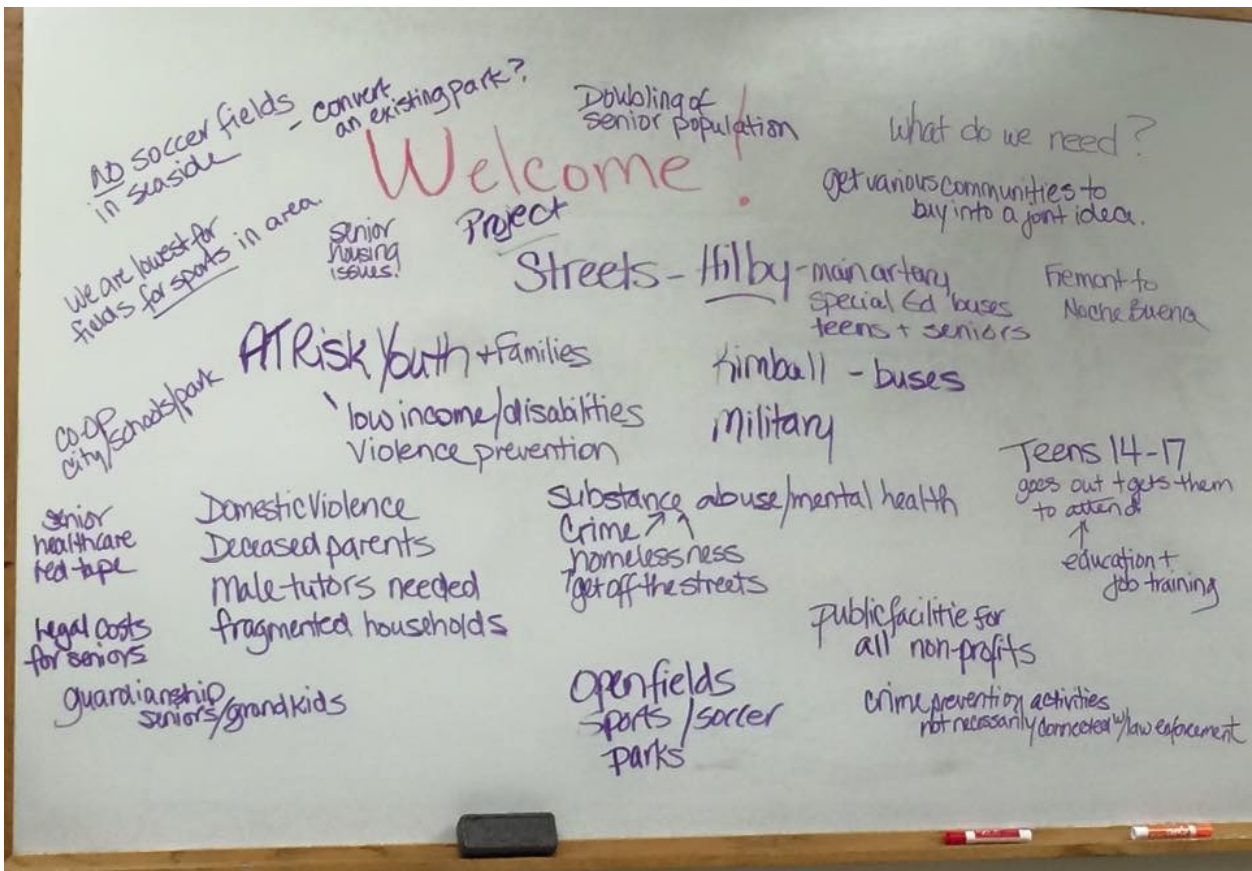 NO soccer fields - convert
an existing park?
in seaside
Doubling of
senior population
what do we need?
Welcome!
get various communities to
buy into a joint idea.
We are lowest for
fields for sports in area.
senior
housing
issues!
Project
Streets - Hilby - main artary
special Ed buses
teens + seniors
Fremont to
Noche Buena
AT Risk Youth + Families
low income/disabilities
Violence prevention
Kimball - buses
Military
CO-OP
city/schools/park
Teens 14-17
goes out + gets them
to attend.
↑
education +
job training
senior
healthcare
red tape
Domestic Violence
Deceased parents
Male-tutors needed
fragmented households
substance abuse/mental health
Crime ↗ ↑
homelessness
get off the streets
Legal costs
for seniors
guardianship
seniors/grandkids
public facilitie for
all non-profits
open fields
sports / soccer
parks
crime prevention activities
not necessarily connected w/law enforcement